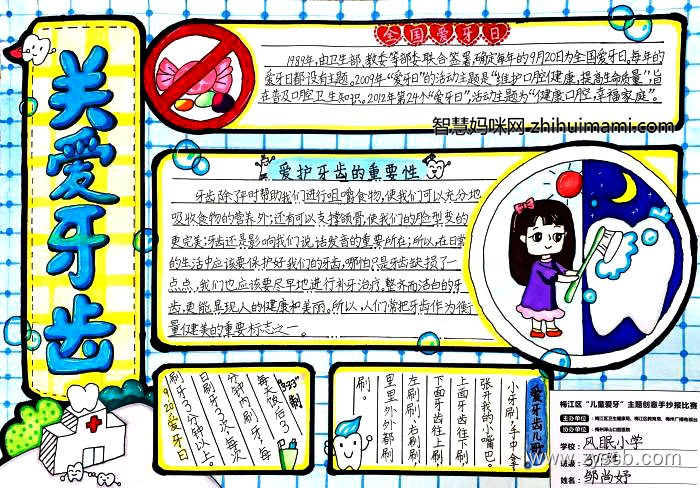 关爱牙齿
全国爱牙日
1989年,由卫生部、教委等部委联合签署,确定每年的9月20日为全国爱牙日。每年的
爱牙日都设有主题。2009年“爱牙日”的活动主题是“维护口腔健康,提高生命质量”,旨
在普及口腔卫生知识。2012年第24个“爱牙日”,活动主题为“健康口腔,幸福家庭”。
智慧妈咪网 zhihuimami.com
爱护牙齿的重要性
牙齿除了平时帮助我们进行咀嚼食物,使我们可以充分地
吸收食物的营养外;还有可以支撑颌骨,使我们的脸型变的
更完美;牙齿还是影响我们说话发音的重要所在;所以,在日常
的生活中应该要保护好我们的牙齿,哪怕只是牙齿缺损了一
点点,我们也应该要尽早地进行补牙治疗。整齐而洁白的牙
齿,更能显现人的健康和美丽。所以,人们常把牙齿作为衡
量健美的重要标志之一。
每天饭后3
分钟内刷牙,每
日刷牙3次,每次
刷牙3分钟以上。
9.20爱牙日
爱牙齿儿歌
小牙刷,手中拿,
张开我的小嘴巴。
上面牙齿往下刷,
下面牙齿往上刷,
左刷刷,右刷刷,
里里外外都刷
刷。
梅江区“儿童爱牙”主题创意手抄报比赛
主办单位
协办单位
学校:风眠小学
班级:
姓名:邹尚妤
www.zyscb.com